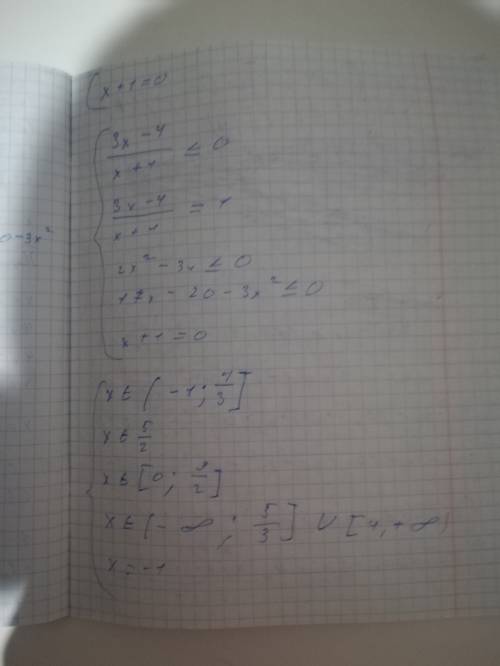 0-3x²
x+1=0
(3x-4)/(x+1) ≤ 0
(3x-4)/(x+1) = 1
2x²-3x ≤ 0
17x-20-3x² ≤ 0
x+1=0
x∈(-1; 4/3]
x∈ 5/2
x∈[0; 3/2]
x∈(-∞; 5/3] ∪ [4,+∞)
x=-1